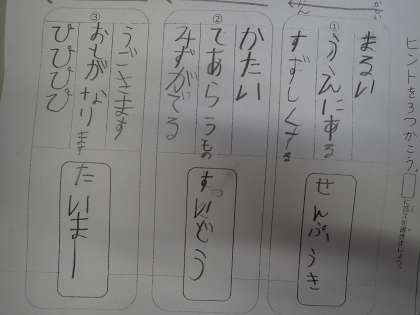 ヒントを3つかこう。
①
まるい
うえにある
すずしくする
せんぷうき
②
かたい
てあらうもの
みずがでる
すいどう
③
うごきます
おとがなります
ぴぴぴぴ
たいまー